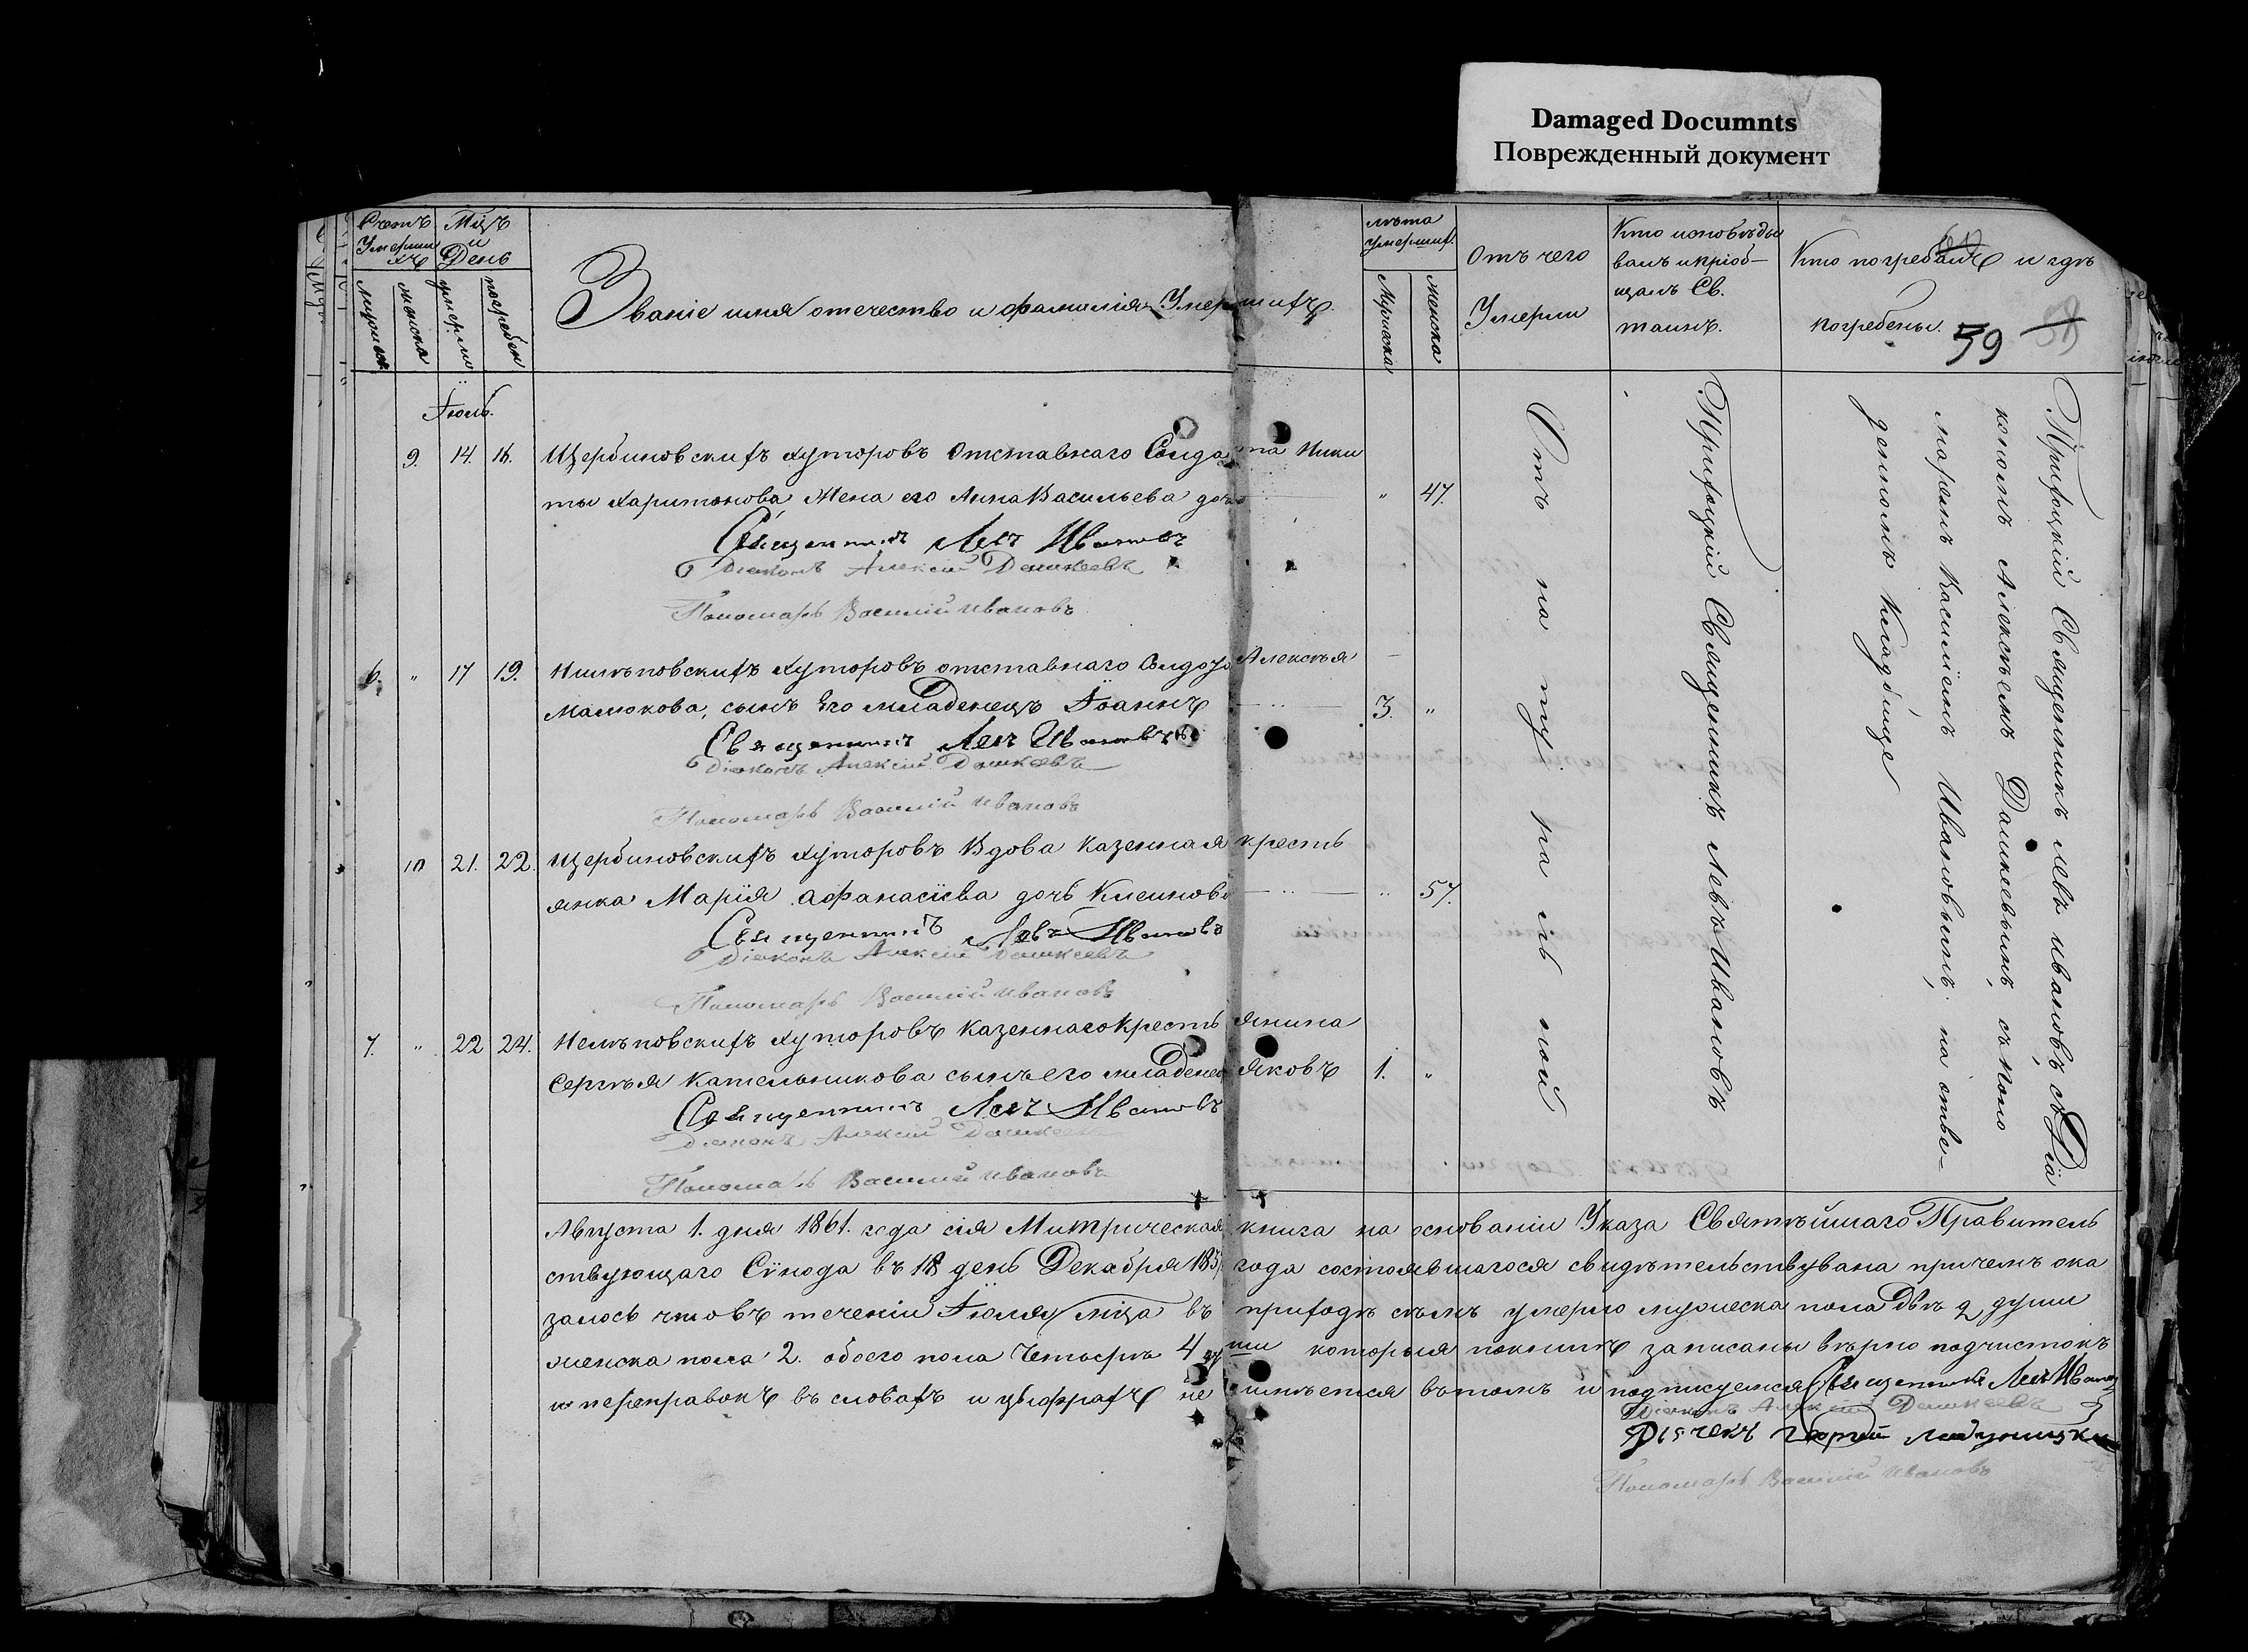 Damaged Documnts
Поврежденный документ
Счетъ Умерши хъ
Мцъ и День
мужеска
женска
умерли
погребен
Званіе имя отечество и фамилія Умершихъ.
лѣта умерших.
Мужиска
Женска
Отъ чего Умерли
Кто исповѣды
валъ и пріоб-
щалъ Св.
таинъ.
Кто погребалъ и гдѣ
погребены.
59
Іюль.
9. 14. 16. Щербиновскихъ хуторовъ Отставнаго Солдата Ники
ты Харитонова, Жена его Анна Васильева дочь " 47.
Священникъ Левъ Ивановъ
Діаконъ Алексій Дашкеевъ
Пономарь Василій Ивановъ
6. " 17 19. хуторовъ отставнаго Алексѣя
Малюкова, сынъ Его младенецъ Іоаннъ 3. "
Священникъ Левъ Ивановъ
Діаконъ Алексій Дашкеевъ
Пономарь Василій Ивановъ
10 21. 22. Щербиновскихъ хуторовъ Вдова Казенная кресть
янка Марія Афанасіева дочь " 57.
Священникъ Левъ Ивановъ
Діаконъ Алексій Дашкеевъ
Пономарь Василій Ивановъ
7. " 22 24. хуторовъ Казеннаго Крестьянина
Сергѣя Кательникова сынъ его младенец Яковъ 1. "
Священникъ Левъ Ивановъ
Діаконъ Алексій Дашкеевъ
Пономарь Василій Ивановъ
Отъ на ту ра ль ной
Приходскій Священникъ Левъ Ивановъ
Приходскій Священникъ Левъ Ивановъ, съ Діа
кономъ Алексѣемъ Дашкеевымъ, съ Поно
маремъ Василіемъ Ивановымъ, на отве-
денномъ Кладбище
Августа 1. дня 1861. года сія Митрическая книга на основаніи Указа Святѣйшаго Правитель
ствующаго Сѵнода въ 18 день Декабря года состоявшагося свидѣтельствувана причемъ ока
залось что въ теченіи Іюля мца въ приходѣ семъ умерло мужеска пола двѣ 2 души
женска пола 2. обоего пола Четыри 4 души которыя записаны вѣрно подчистокъ
и переправокъ въ словахъ и цыфрахъ не имѣется въ томъ и подписуемся Священникъ Левъ Ивановъ
Діаконъ Алексій Дашкеевъ
Георгій
Пономарь Василій Ивановъ